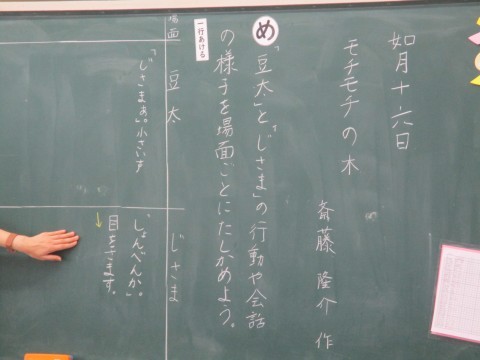 如月十六日
モチモチの木
斎藤隆介作
め
「豆太」と「じさま」の行動や会話
の様子を場面ごとにたしかめよう。
一行あける
場面
豆太
じさま
「じさまぁ。」小さい声
「しょんべんか。」
目をさます。